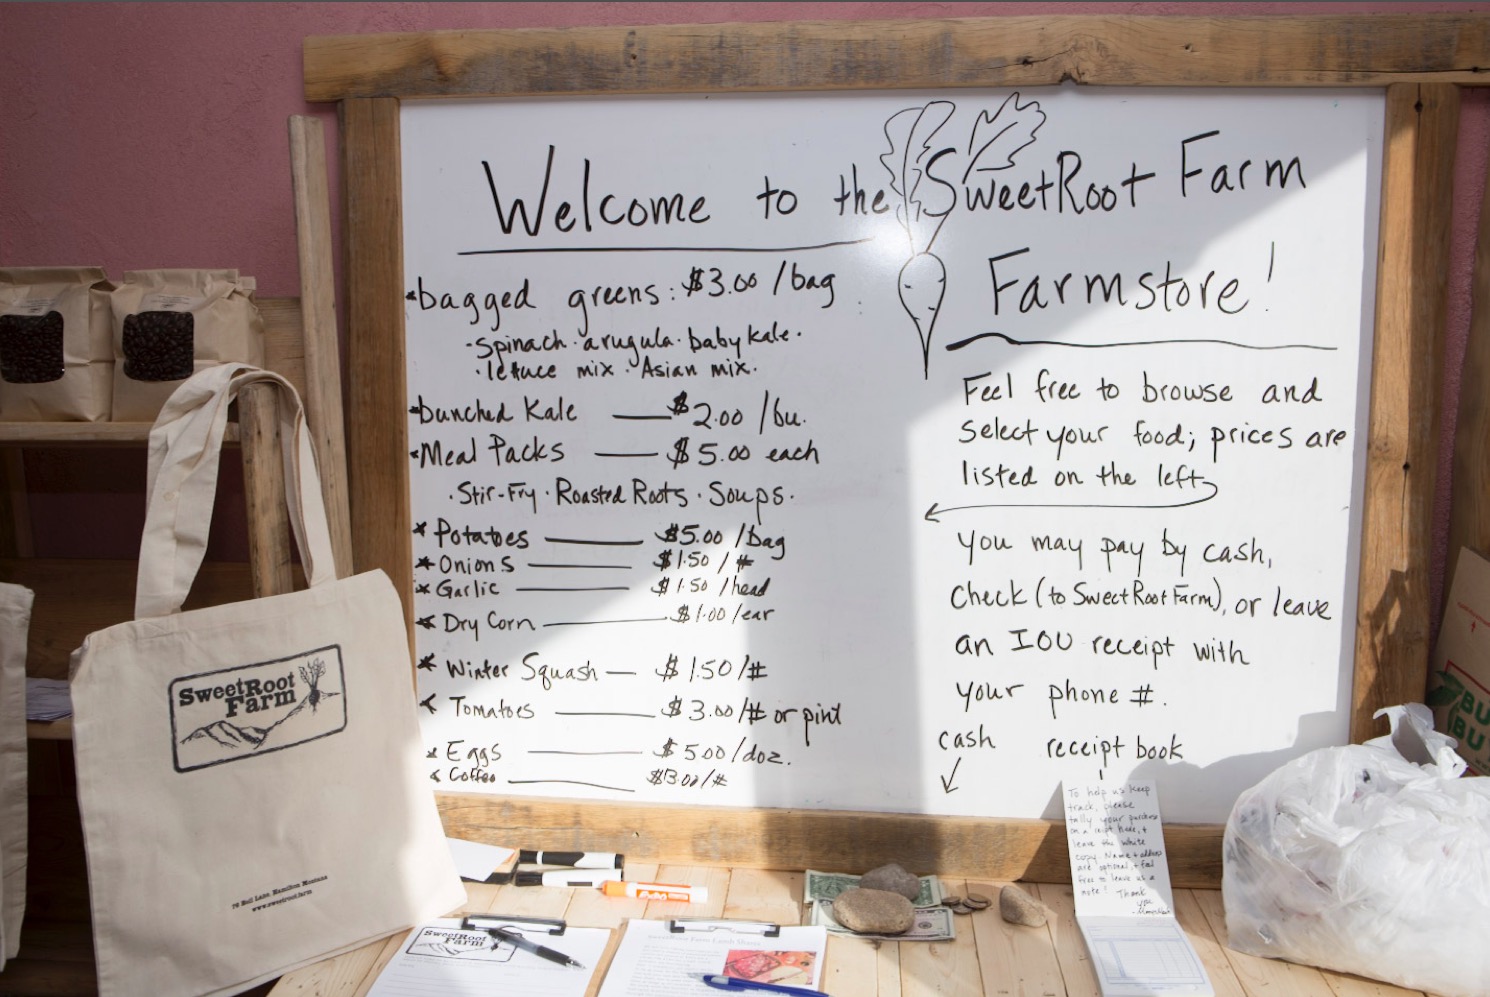 Welcome to the SweetRoot Farm
Farmstore!
bagged greens: $3.00 /bag
·spinach·arugula·baby kale·
·lettuce mix·Asian mix·
bunched Kale — $2.00 /bu.
Meal Packs — $5.00 each
·Stir-Fry·Roasted Roots·Soups·
* Potatoes — $5.00 /bag
* Onions — $1.50 / #
* Garlic — $1.50 /head
* Dry Corn — $1.00 /ear
* Winter Squash — $1.50/#
* Tomatoes — $3.00/# or pint
* Eggs — $5.00/doz.
* Coffee — $13.00/#
Feel free to browse and
select your food; prices are
listed on the left
You may pay by cash,
check (to SweetRoot Farm), or leave
an IOU receipt with
your phone #.
cash receipt book
To help us keep
track, please
tally your purchase
on a receipt here, +
leave the white
copy. Name + address
are optional, + feel
free to leave us a
note! Thank
you
SweetRoot
Farm
Hamilton Montana
www.sweetroot.farm
SweetRoot
Farm
Farm Lamb Shares
BU
BU